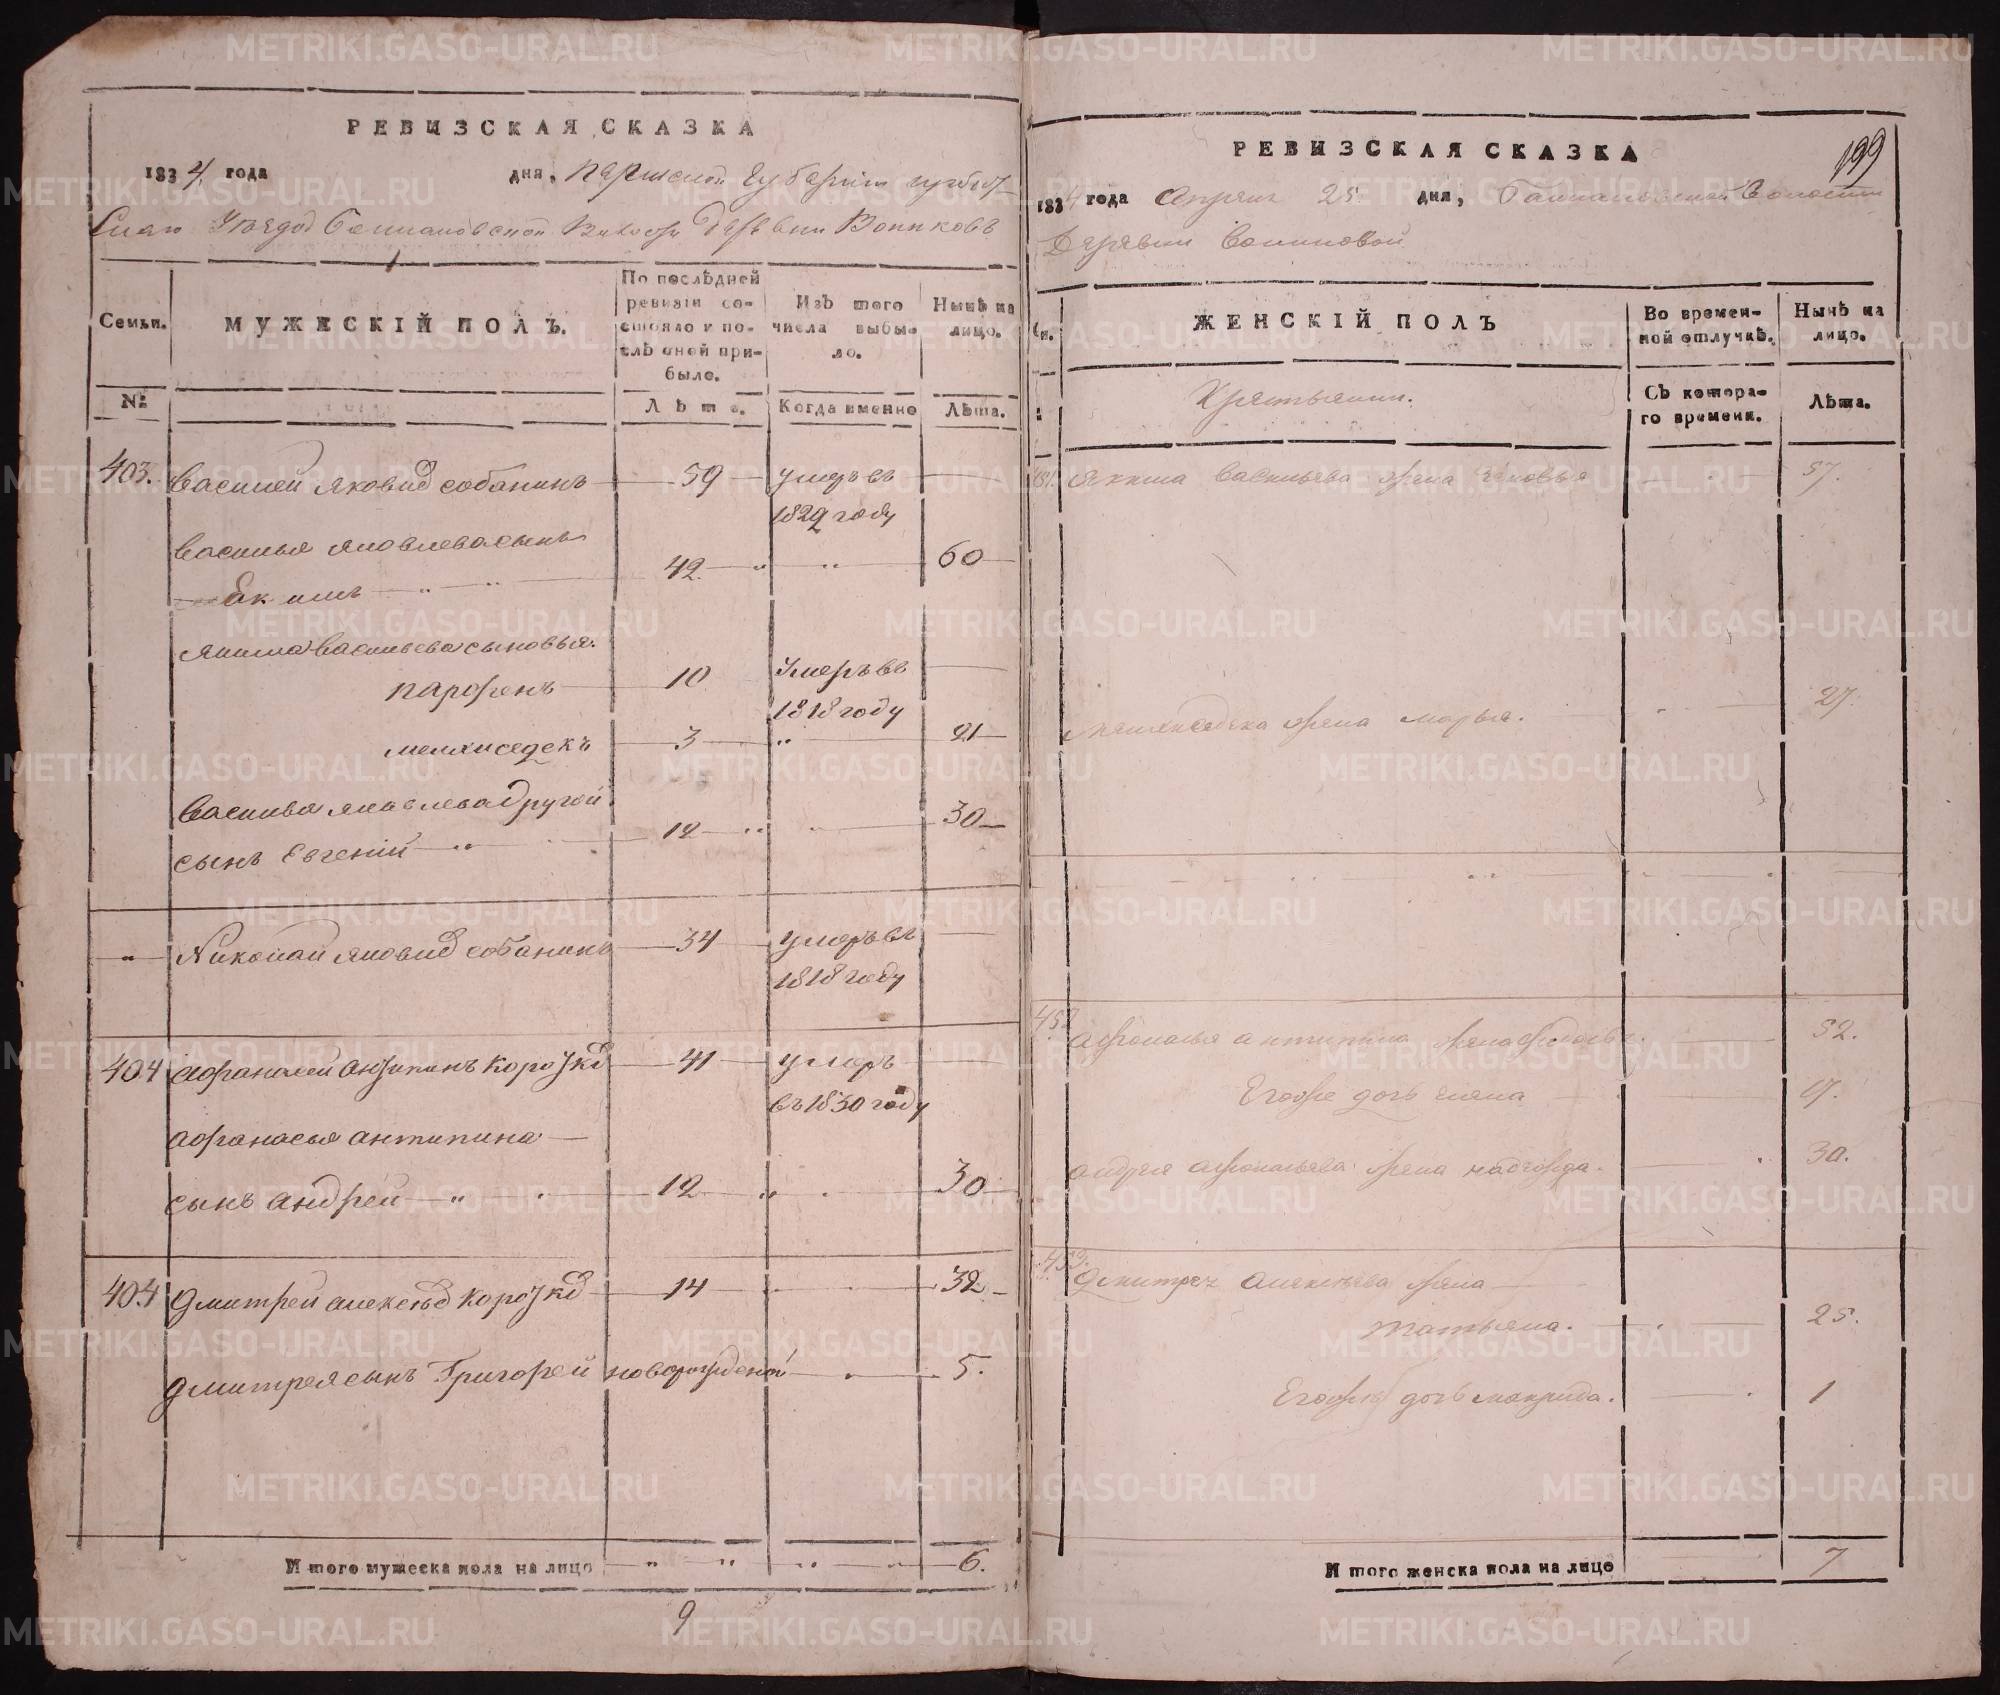 РЕВИЗСКАЯ СКАЗКА
1834 года дня, Пермской Губернии Ирбит
Скаго Уезда Волости Деревни
Семьи.
МУЖЕСКІЙ ПОЛЪ.
По послѣдней ревизіи состояло и послѣ оной прибыло.
Изъ того числа выбыло.
Нынѣ на лицо.
№
Лѣта.
Когда именно
Лѣта.
403. Василей Яковлев Собанинъ 59 умеръ въ
1829 году
Василья Яковлева сынъ
Екимъ 42 60
Якима Васильева сыновья:
Парфенъ 10 умеръ въ
1818 году
Мелхиседекъ 3 21
Василья Яковлева другой
сынъ Евгеній 12 30
Николай Яковлев Собанинъ 34 умеръ въ
1818 году
404 Афанасей Антипинъ Коротк 41 умеръ
въ 1830 году
Афанасья Антипина
сынъ Андрей 12 30
404 Дмитрей Алексеев Коротк 14 32
Дмитрея сынъ Григорей новорожденой 5.
Итого мужеска пола на лицо 6.
9
199
РЕВИЗСКАЯ СКАЗКА
1834 года Апреля 25 дня, Волости
Деревни
ЖЕНСКІЙ ПОЛЪ
Во временной отлучкѣ.
Нынѣ на лицо.
Крестьянии.
Съ котораго времени.
Лѣта.
Якима Васильева жена 57.
Мелхиседека жена Марья. 27
452 Афонасья Антипина жена 52.
Егоже дочь 17.
Андрея Афонасьева жена Надежда. 30.
453. Дмитрея Алексеева жена
Татьяна. 25.
Егоже дочь Макрида. 1
Итого женска пола на лице 7
METRIKI.GASO-URAL.RU